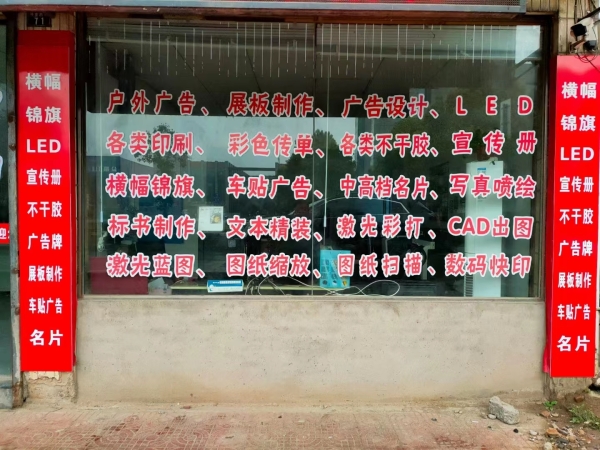 横幅
锦旗
LED
宣传册
不干胶
广告牌
展板制作
车贴广告
名片
户外广告、展板制作、广告设计、LED
各类印刷、彩色传单、各类不干胶、宣传册
横幅锦旗、车贴广告、中高档名片、写真喷绘
标书制作、文本精装、激光彩打、CAD出图
激光蓝图、图纸缩放、图纸扫描、数码快印
横幅
锦旗
LED
宣传册
不干胶
广告牌
展板制作
车贴广告
名片